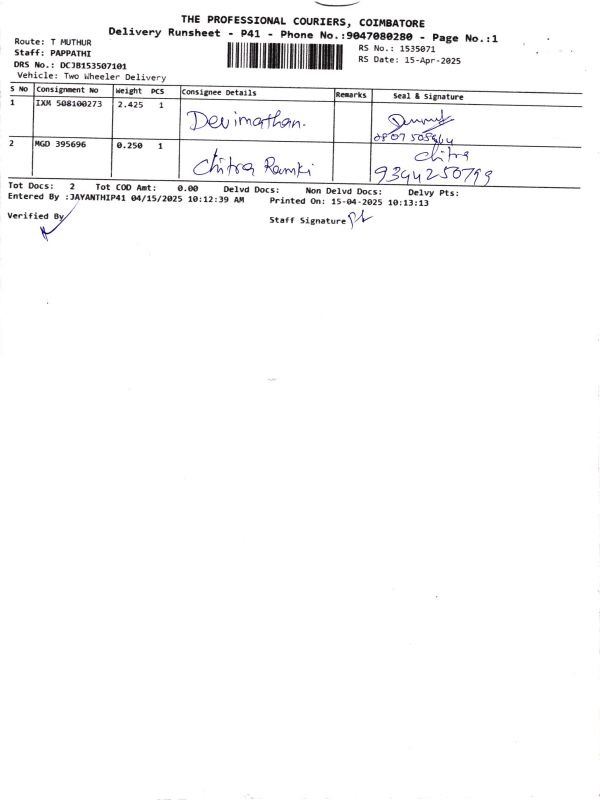 THE PROFESSIONAL COURIERS, COIMBATORE
Delivery Runsheet - P41 - Phone No.:9047080280 - Page No.:1
Route: T MUTHUR
RS No.: 1535071
Staff: PAPPATHI
RS Date: 15-Apr-2025
DRS No.: DCJB153507101
Vehicle: Two Wheeler Delivery
S No Consignment No Weight PCS Consignee Details Remarks Seal & Signature
1 IXM 508100273 2.425 1 Devimathan.
2 MGD 395696 0.250 1 Chitra Ramki Chitra
9344250799
Tot Docs: 2 Tot COD Amt: 0.00 Delvd Docs: Non Delvd Docs: Delvy Pts:
Entered By :JAYANTHIP41 04/15/2025 10:12:39 AM Printed On: 15-04-2025 10:13:13
Verified By
Staff Signature